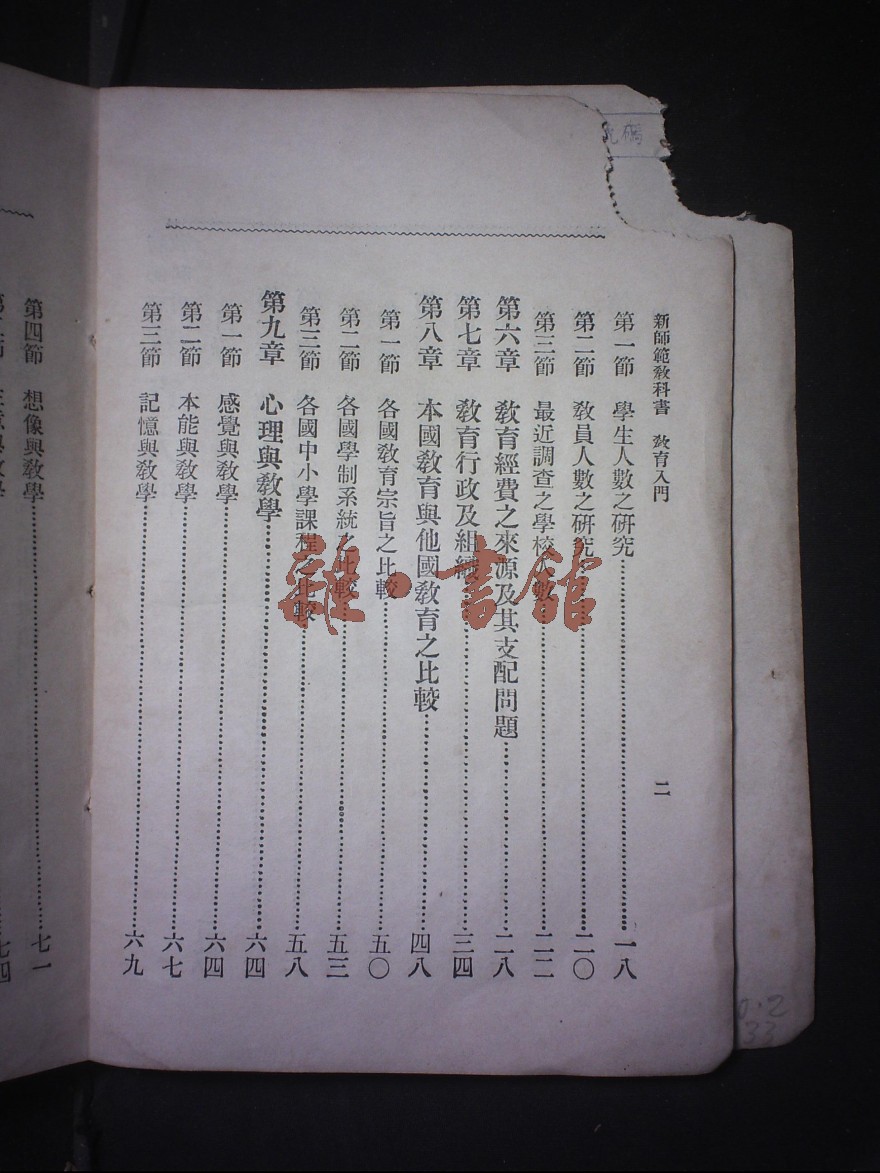 新師範教科書 教育入門 二
第一節 學生人數之研究……一八
第二節 教員人數之研究……二〇
第三節 最近調查之學校人數……二二
第六章 教育經費之來源及其支配問題……二八
第七章 教育行政及組織……三四
第八章 本國教育與他國教育之比較……四八
第一節 各國教育宗旨之比較……五〇
第二節 各國學制系統之比較……五三
第三節 各國中小學課程之比較……五八
第九章 心理與教學……六四
第一節 感覺與教學……六四
第二節 本能與教學……六七
第三節 記憶與教學……六九
第四節 想像與教學……七一
七四
雜·書館